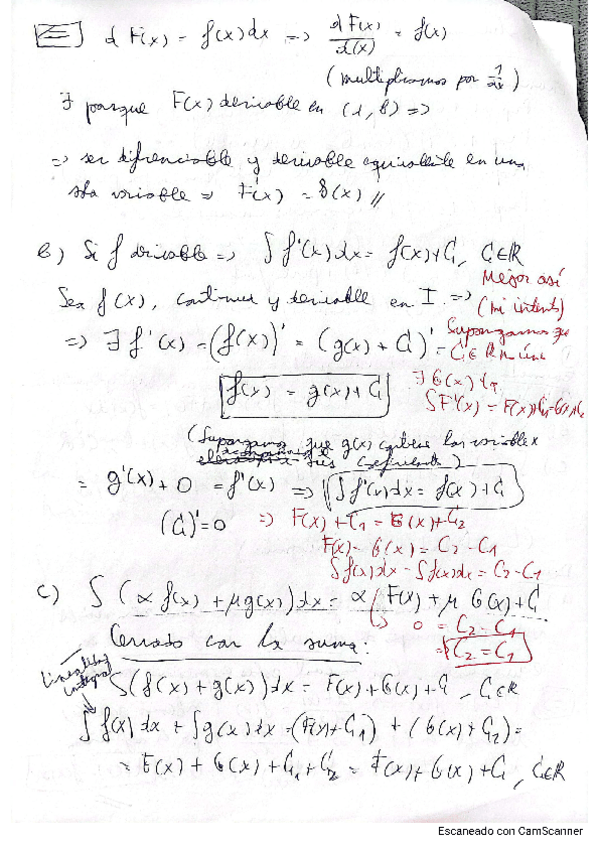 ⇐] d F(x) = f(x) dx ⇒ d F(x) / d(x) = f(x)
(multiplicamos por 1/dx)
∃ porque F(x) derivable en (a, b) ⇒
⇒ ser diferenciable y derivable equivalente en una
sola variable ⇒ F'(x) = f(x) //
b) Si f derivable ⇒ ∫ f'(x) dx = f(x) + C, C∈ℝ
Mejor así
Sea f(x), continua y derivable en I. ⇒
(mi intento)
⇒ ∃ f'(x) = (f(x))' = (g(x) + C)' =
Supongamos que
C∈ℝ
f(x) = g(x) + C
∃ G(x)
∫ F'(x) = F(x)+C1 = G(x)+C2
(Supongamos que g(x) contiene las variables x
sus coeficientes)
= g'(x) + 0 = f'(x) ⇒ ∫ f'(x) dx = f(x) + C
(C)' = 0
⇒ F(x) + C1 = G(x) + C2
F(x) - G(x) = C2 - C1
∫ f(x) dx - ∫ f(x) dx = C2 - C1
c) ∫ (α f(x) + μ g(x)) dx = α F(x) + μ G(x) + C
↳ 0 = C2 - C1
⇒ C2 = C1
Cerrado con la suma:
Linealidad integral
∫ (f(x) + g(x)) dx = F(x) + G(x) + C, C∈ℝ
∫ f(x) dx + ∫ g(x) dx = (F(x) + C1) + (G(x) + C2) =
= F(x) + G(x) + C1 + C2 = F(x) + G(x) + C, C∈ℝ
Escaneado con CamScanner